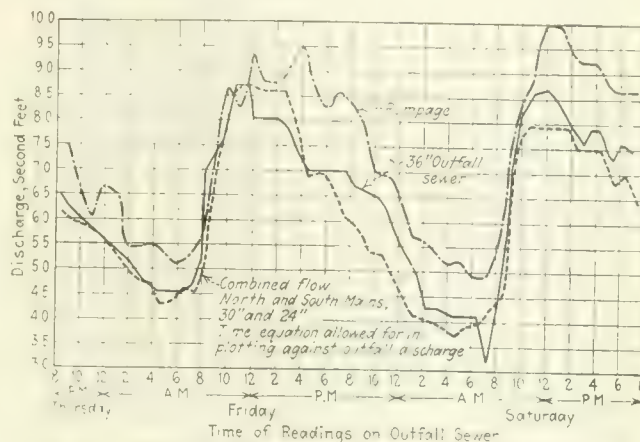 Discharge, Second Feet
10.0
9.5
9.0
8.5
8.0
7.5
7.0
6.5
6.0
5.5
5.0
4.5
4.0
3.5
3.0
Pumpage
36" Outfall
sewer
Combined flow
North and South Mains,
30" and 24"
Time equation allowed for in
plotting against outfall discharge
8 10 12 2 4 6 8 10 12 2 4 6 8 10 12 2 4 6 8 10 12 2 4 6 8
P.M. A.M. P.M A.M P.M
Thursday Friday Saturday
Time of Readings on Outfall Sewer